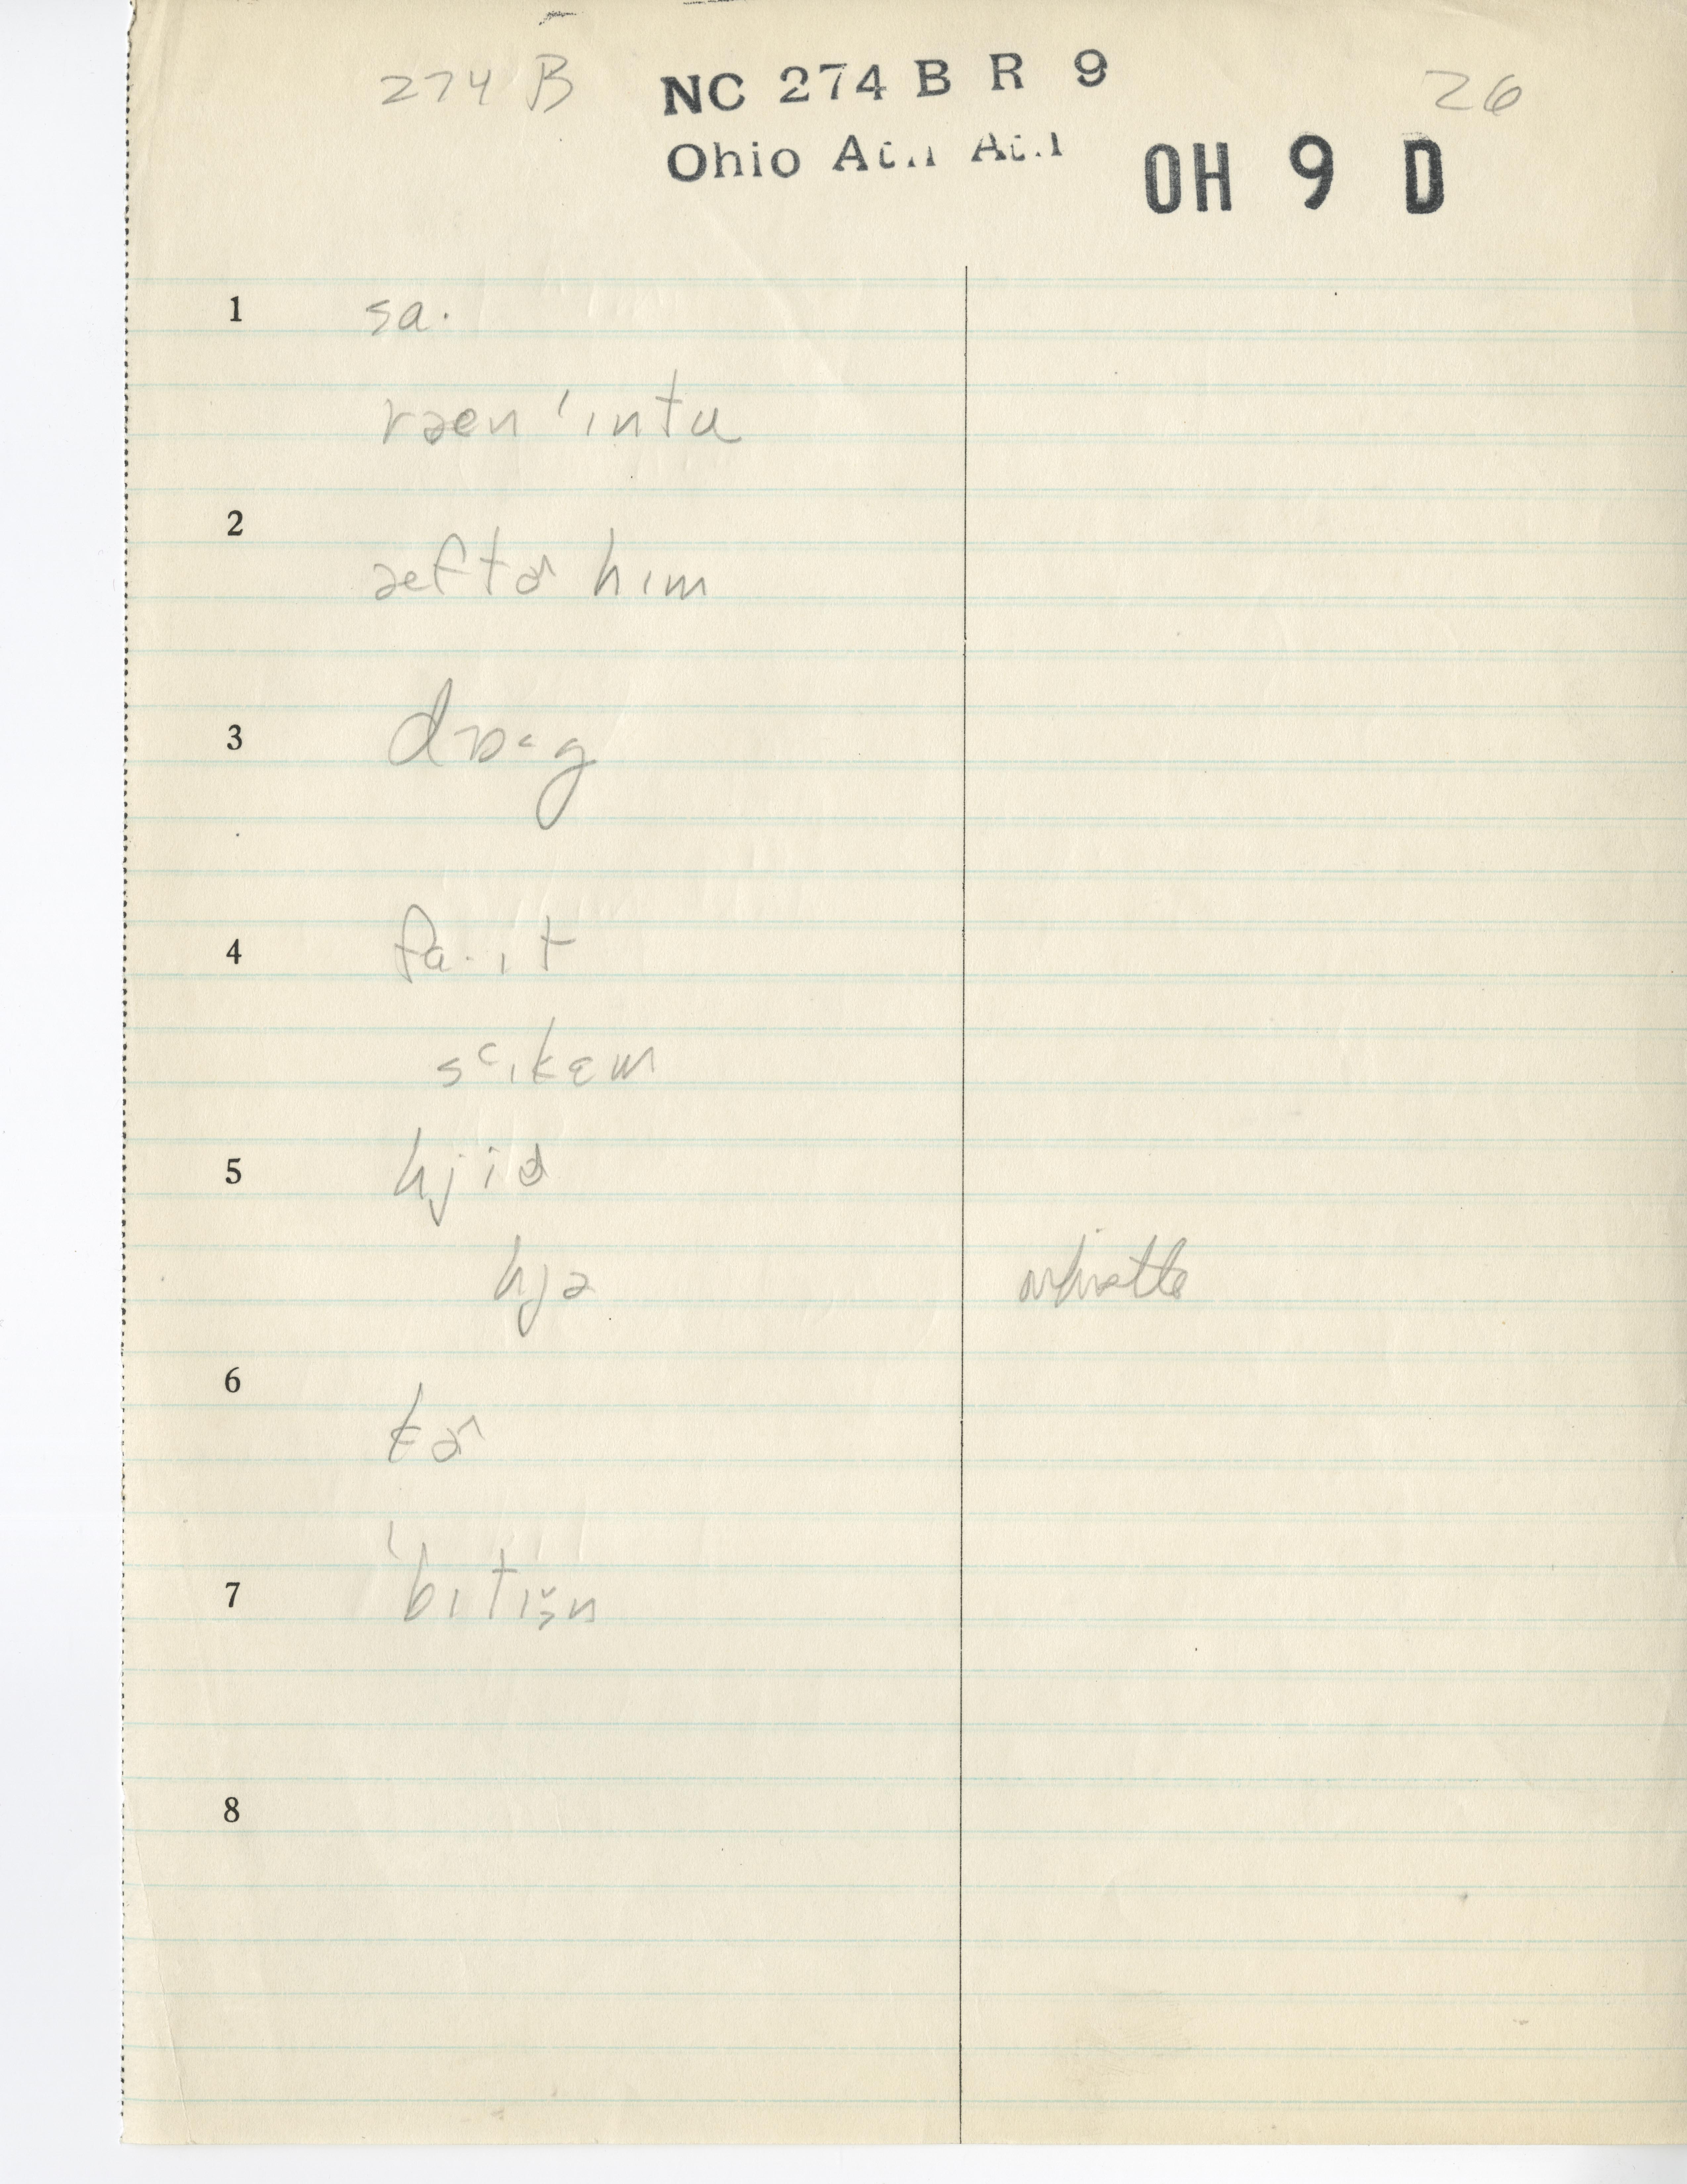 274 B NC 274 B R 9 26
Ohio OH 9 D
1 sa·
ræn 'ɪntu
2
æftɚ hɪm
3 dɒ˂g
4 fa·ɪt
s˂ɪkɛm
5 hjiɚ
hjə whistle
6
kɚ
7 'bɪtɪšn
8